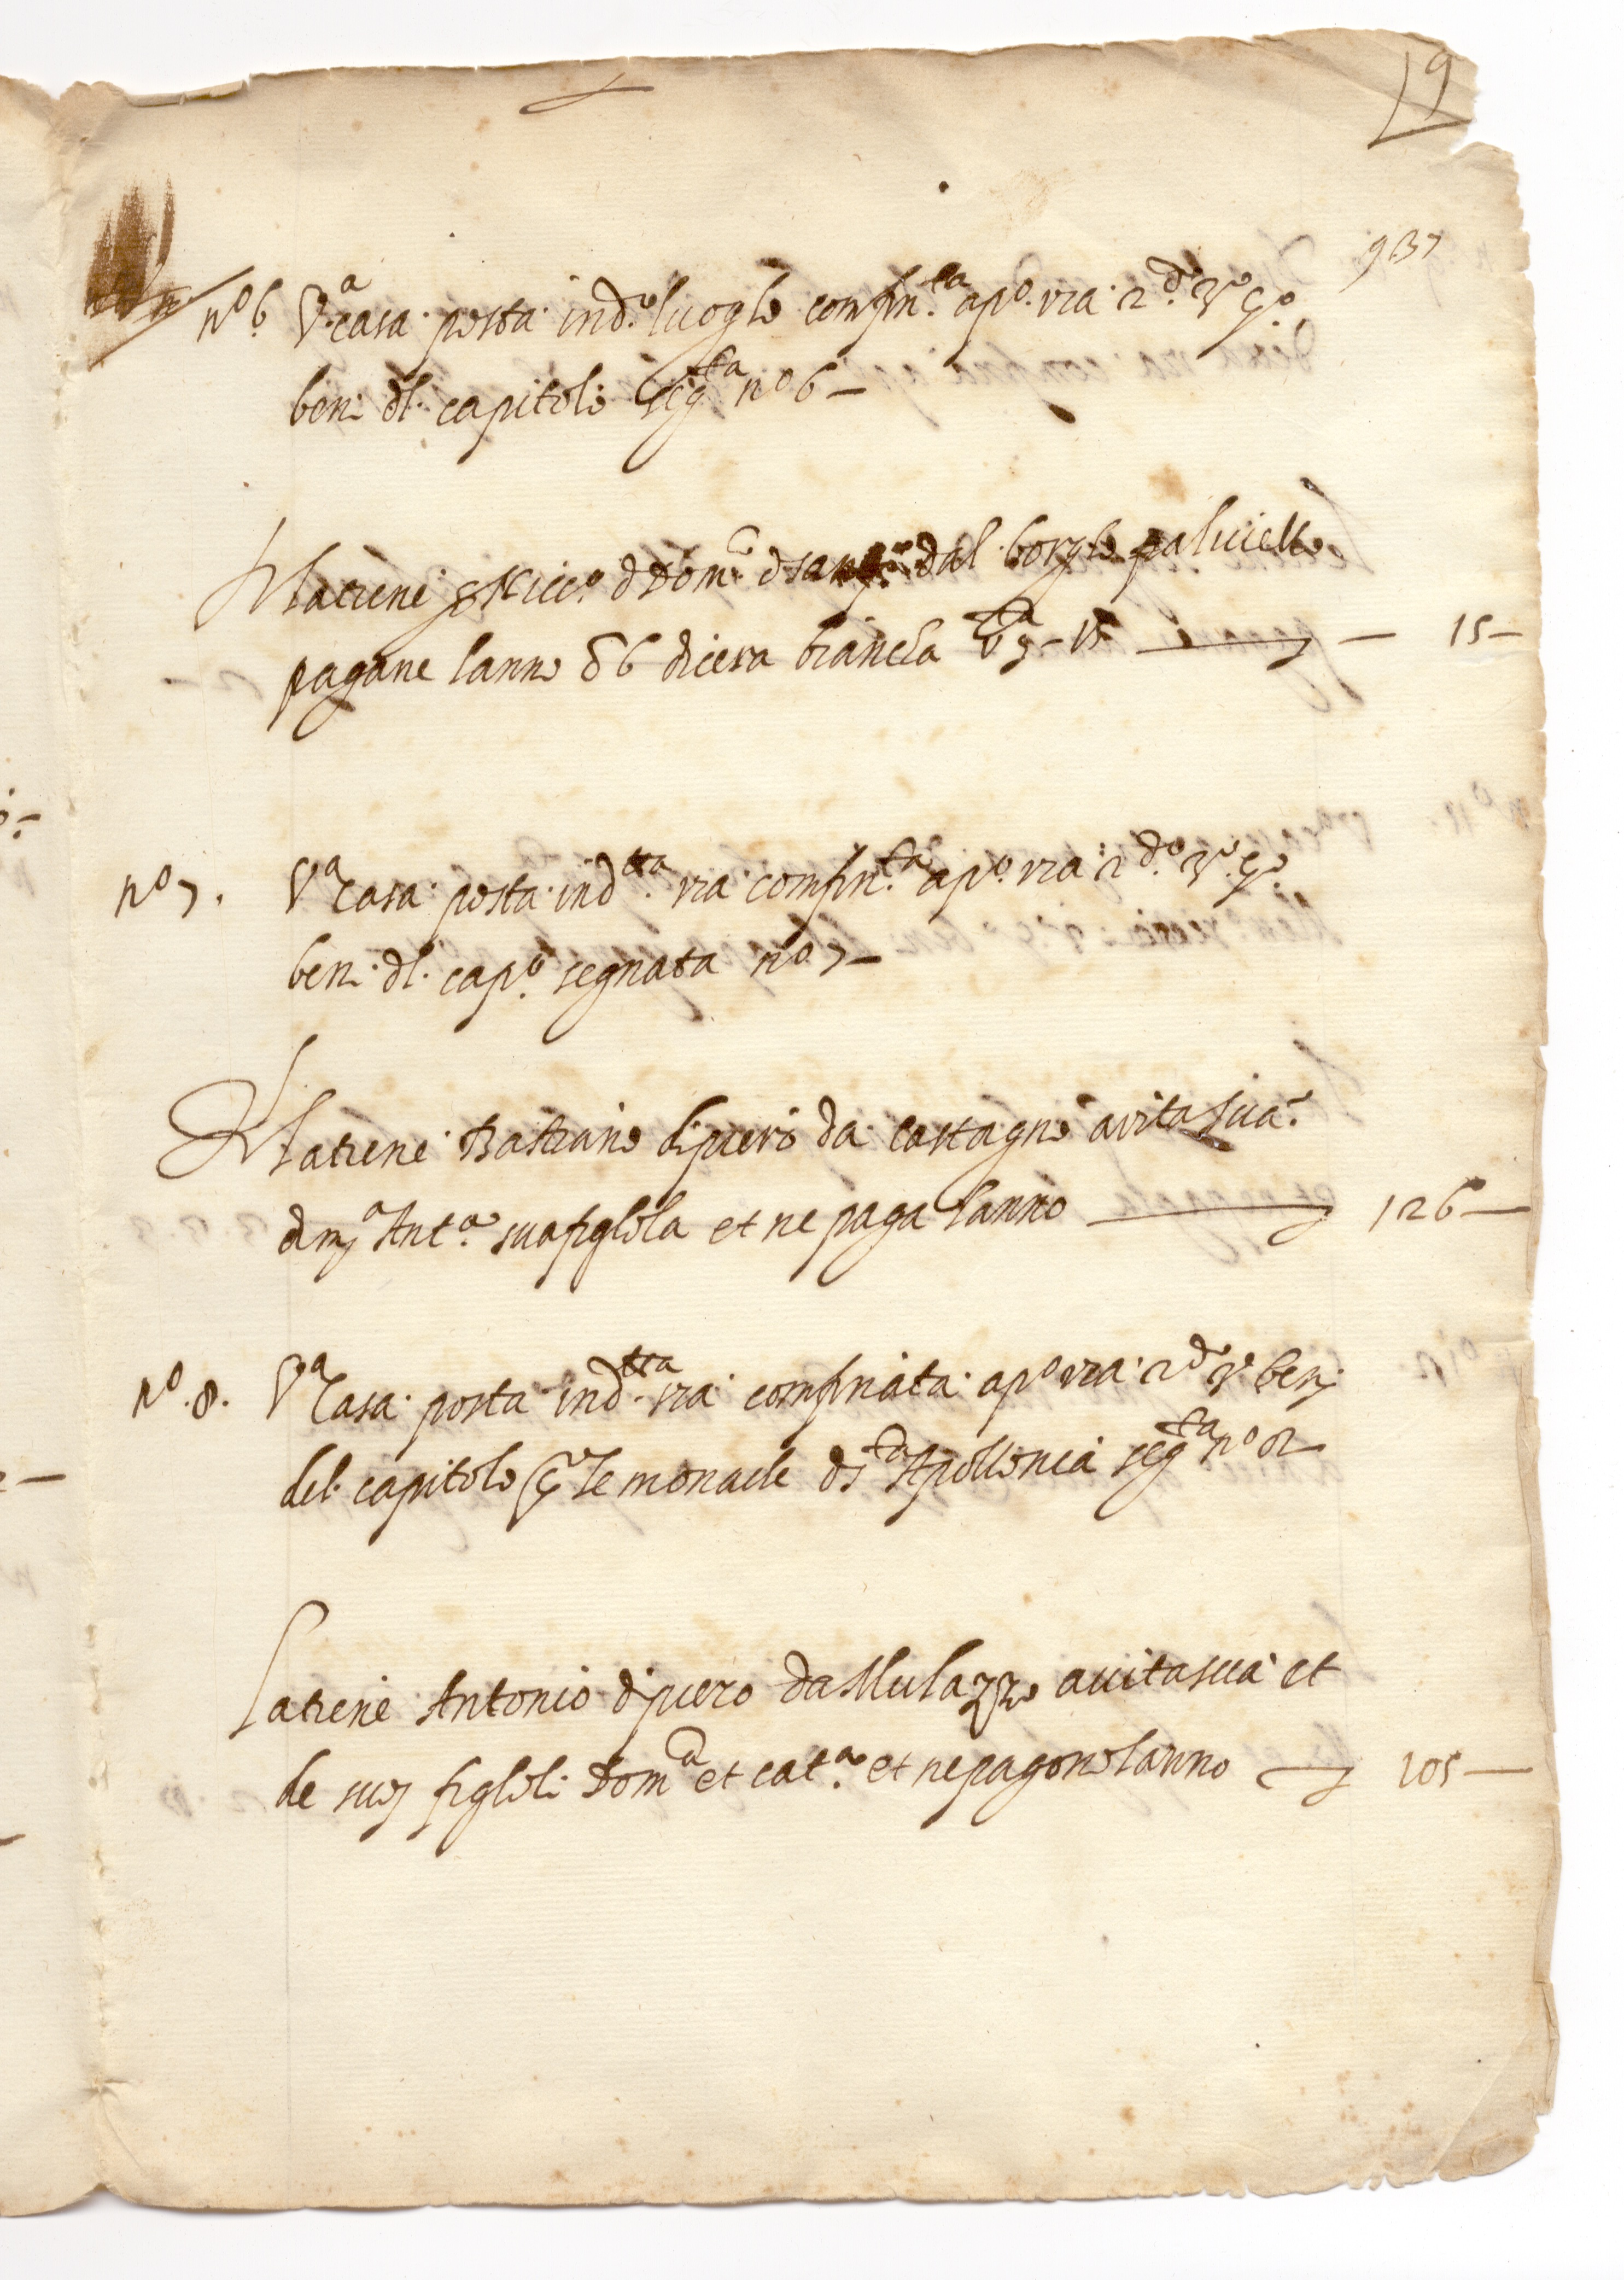 9
937
n.º 6 Vª casa posta in d.º luogho confin.ta a pº via 2.º 3º 4º
beni dl. capitolo seg.ta nº 6 —
La tiene Nicc.º d Dom.º dal borgho
pagane lanno 6 di cera biancha — 15 —
nº 7. Vª casa posta in d.tta via confin.ta a pº via 2.do 3º 4º
beni dl. cap.º segnata nº 7 —
La tiene Bastiano di piero da castagno a vita sua
Ant.ª sua figlola et ne paga lanno — 126 —
Nº. 8. Vª Casa posta in d.tta via confinata a pº via 2.do 3º beni
del capitolo 4º le monache di S.ta Apollonia seg.ta nº 8
La tiene Antonio di piero da Mulazzo a vita sua et
de suoj figloli Dom.ª et cat.ª et ne pagono lanno — 105 —